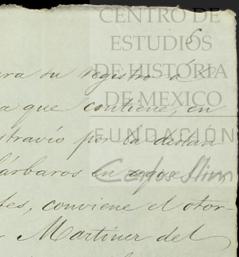 CENTRO DE
ESTUDIOS
DE HISTORIA
DE MEXICO
FUNDACIÓN
Carlos Slim
6
ara su registro á
a que contiene, en
travío por la
árbaros en
tes, conviene el otor-
Martinez del